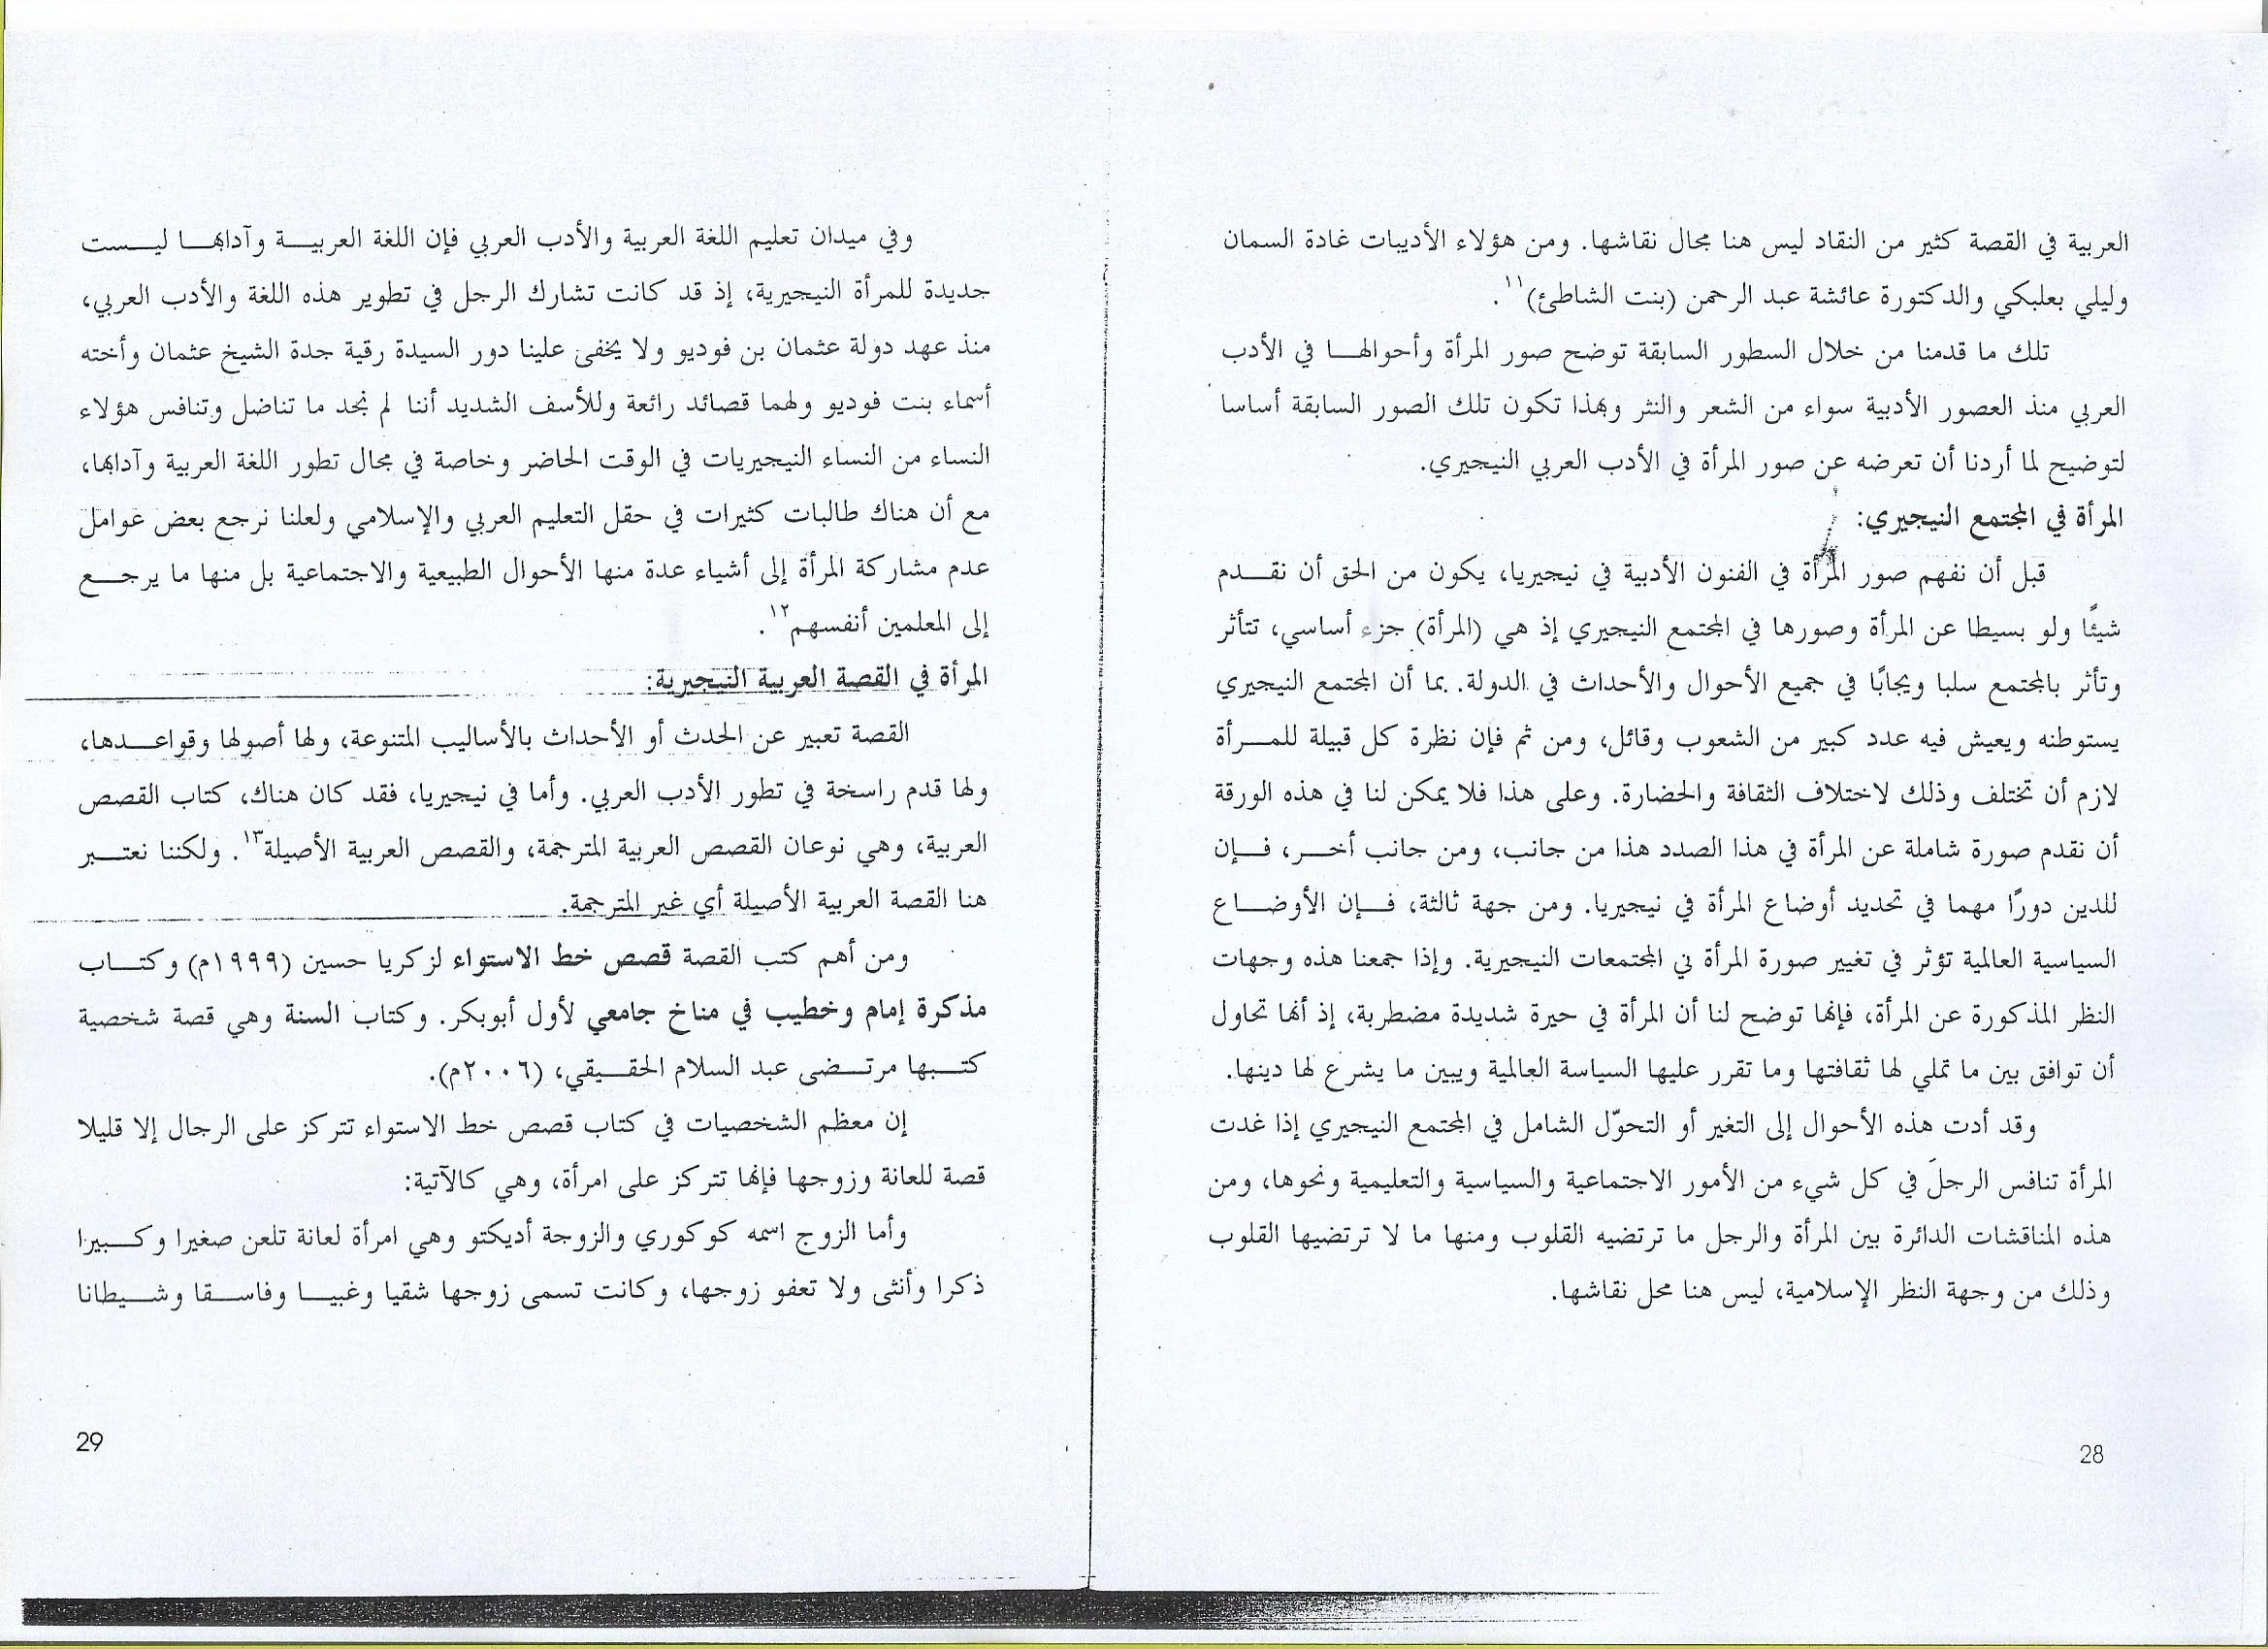 العربية في القصة كثير من النقاد ليس هنا مجال نقاشها. ومن هؤلاء الأديبات غادة السمان
وليلي بعلبكي والدكتورة عائشة عبد الرحمن (بنت الشاطئ)١١.
تلك ما قدمنا من خلال السطور السابقة توضح صور المرأة وأحوالها في الأدب
العربي منذ العصور الأدبية سواء من الشعر والنثر وبهذا تكون تلك الصور السابقة أساسا
لتوضيح لما أردنا أن تعرضه عن صور المرأة في الأدب العربي النيجيري.
المرأة في المجتمع النيجيري:
قبل أن نفهم صور المرأة في الفنون الأدبية في نيجيريا، يكون من الحق أن نقدم
شيئًا ولو بسيطا عن المرأة وصورها في المجتمع النيجيري إذ هي (المرأة) جزء أساسي، تتأثر
وتأثر بالمجتمع سلبا ويجابًا في جميع الأحوال والأحداث في الدولة. بما أن المجتمع النيجيري
يستوطنه ويعيش فيه عدد كبير من الشعوب وقائل، ومن ثم فإن نظرة كل قبيلة للمرأة
لازم أن تختلف وذلك لاختلاف الثقافة والحضارة. وعلى هذا فلا يمكن لنا في هذه الورقة
أن نقدم صورة شاملة عن المرأة في هذا الصدد هذا من جانب، ومن جانب أخر، فإن
للدين دورًا مهما في تحديد أوضاع المرأة في نيجيريا. ومن جهة ثالثة، فإن الأوضاع
السياسية العالمية تؤثر في تغيير صورة المرأة في المجتمعات النيجيرية. وإذا جمعنا هذه وجهات
النظر المذكورة عن المرأة، فإنها توضح لنا أن المرأة في حيرة شديدة مضطربة، إذ أنها تحاول
أن توافق بين ما تملي لها ثقافتها وما تقرر عليها السياسة العالمية ويبين ما يشرع لها دينها.
وقد أدت هذه الأحوال إلى التغير أو التحوّل الشامل في المجتمع النيجيري إذا غدت
المرأة تنافس الرجلَ في كل شيء من الأمور الاجتماعية والسياسية والتعليمية ونحوها، ومن
هذه المناقشات الدائرة بين المرأة والرجل ما ترتضيه القلوب ومنها ما لا ترتضيها القلوب
وذلك من وجهة النظر الإسلامية، ليس هنا محل نقاشها.
28
وفي ميدان تعليم اللغة العربية والأدب العربي فإن اللغة العربية وآدابها ليست
جديدة للمرأة النيجيرية، إذ قد كانت تشارك الرجل في تطوير هذه اللغة والأدب العربي،
منذ عهد دولة عثمان بن فوديو ولا يخفى علينا دور السيدة رقية جدة الشيخ عثمان وأخته
أسماء بنت فوديو ولهما قصائد رائعة وللأسف الشديد أننا لم نجد ما تناضل وتنافس هؤلاء
النساء من النساء النيجيريات في الوقت الحاضر وخاصة في مجال تطور اللغة العربية وآدابها،
مع أن هناك طالبات كثيرات في حقل التعليم العربي والإسلامي ولعلنا نرجع بعض عوامل
عدم مشاركة المرأة إلى أشياء عدة منها الأحوال الطبيعية والاجتماعية بل منها ما يرجع
إلى المعلمين أنفسهم١٢.
المرأة في القصة العربية النيجيرية:
القصة تعبير عن الحدث أو الأحداث بالأساليب المتنوعة، ولها أصولها وقواعدها،
ولها قدم راسخة في تطور الأدب العربي. وأما في نيجيريا، فقد كان هناك، كتاب القصص
العربية، وهي نوعان القصص العربية المترجمة، والقصص العربية الأصيلة١٣. ولكننا نعتبر
هنا القصة العربية الأصيلة أي غير المترجمة.
ومن أهم كتب القصة قصص خط الاستواء لزكريا حسين (١٩٩٩م) وكتاب
مذكرة إمام وخطيب في مناخ جامعي لأول أبوبكر. وكتاب السنة وهي قصة شخصية
كتبها مرتضى عبد السلام الحقيقي، (٢٠٠٦م).
إن معظم الشخصيات في كتاب قصص خط الاستواء تتركز على الرجال إلا قليلا
قصة للعانة وزوجها فإنها تتركز على امرأة، وهي كالآتية:
وأما الزوج اسمه كوكوري والزوجة أديكتو وهي امرأة لعانة تلعن صغيرا وكبيرا
ذكرا وأنثى ولا تعفو زوجها، وكانت تسمى زوجها شقيا وغبيا وفاسقا وشيطانا
29